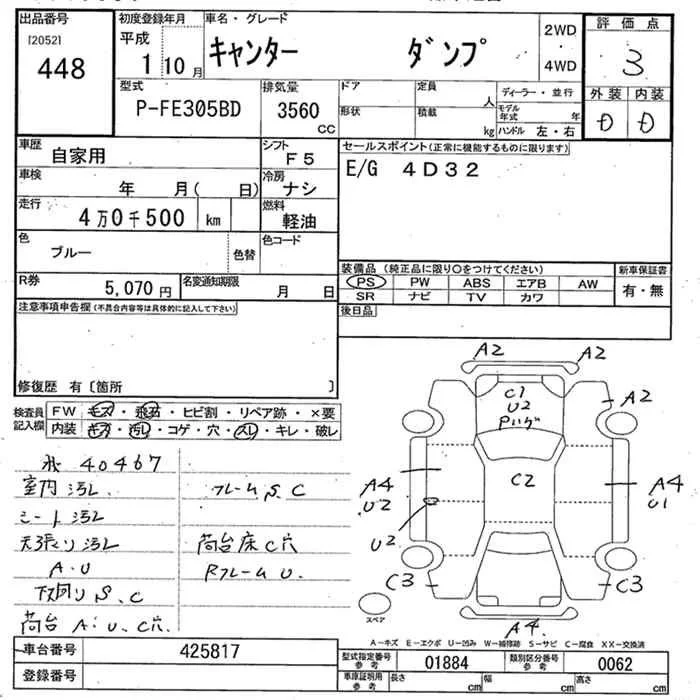 出品番号 初度登録年月 車名・グレード 評価点
[2052] 平成 キャンター ダンプ 2WD 3
448 1 10月 4WD
型式 排気量 ドア 定員 人 ディーラー・並行 外装 内装
P-FE305BD 3560 CC 形状 積載 kg モデル年式 年 D D
ハンドル 左・右
車歴 自家用 シフト F5 セールスポイント(正常に機能するものに限ります)
車検 年 月( 日) 冷房 ナシ E/G 4D32
走行 4万0千500 km 燃料 軽油
色 ブルー 色替 色コード
装備品(純正品に限り○をつけてください) 新車保証書
PS PW ABS エアB AW 有・無
SR ナビ TV カワ
R券 5,070円 名変通知期限 月 日
後日品
注意事項申告欄(不具合内容等は具体的に記入して下さい)
修復歴 有〔箇所 〕
検査員記入欄 FW キズ・飛石・ヒビ割・リペア跡・×要
内装 キズ・汚れ・コゲ・穴・スレ・キレ・破レ
A2 A2
C1 A2
U2
Pハゲ
C2
A4 A4
U2 U1
U2
C3 C3
A4
スペア
40467
室内汚レ フレームS、C
シート汚レ
天張り汚レ 荷台床C穴
A・U RフレームU.
下回りS、C
荷台A・U、C穴
A-キズ E-エクボ U-凹み W-補修跡 S-サビ C-腐食 XX-交換済
車台番号 425817
型式指定番号 参考 01884 類別区分番号 参考 0062
登録番号
車庫証明用 参考 長さ cm 幅 cm 高さ cm